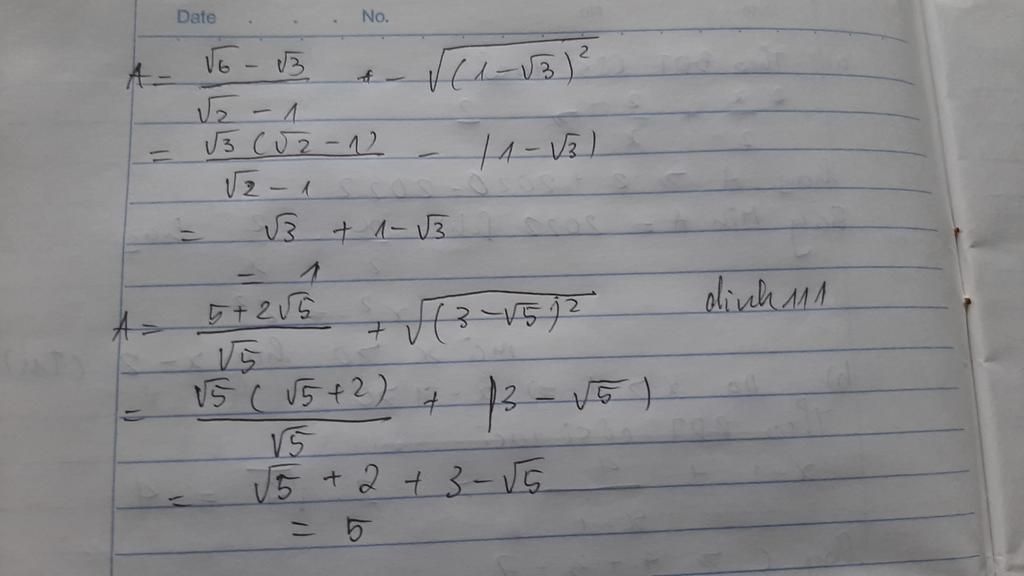 Date . . . No.
A = \frac{√6 - √3}{√2 - 1} - √((1 - √3)²)
= \frac{√3 (√2 - 1)}{√2 - 1} - |1 - √3|
= √3 + 1 - √3
= 1
A = \frac{5 + 2√5}{√5} + √((3 - √5)²) dinh111
= \frac{√5 (√5 + 2)}{√5} + |3 - √5|
= √5 + 2 + 3 - √5
= 5